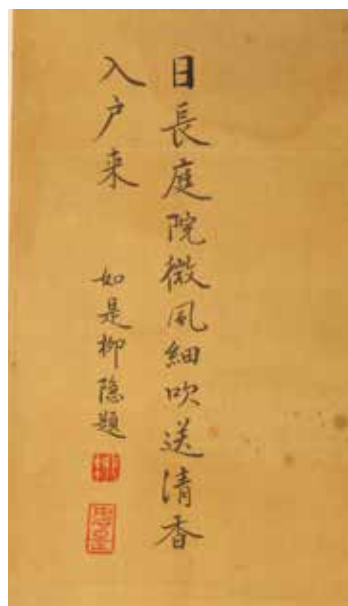 日長庭院微風細吹送清香
入户来
如是柳隐題